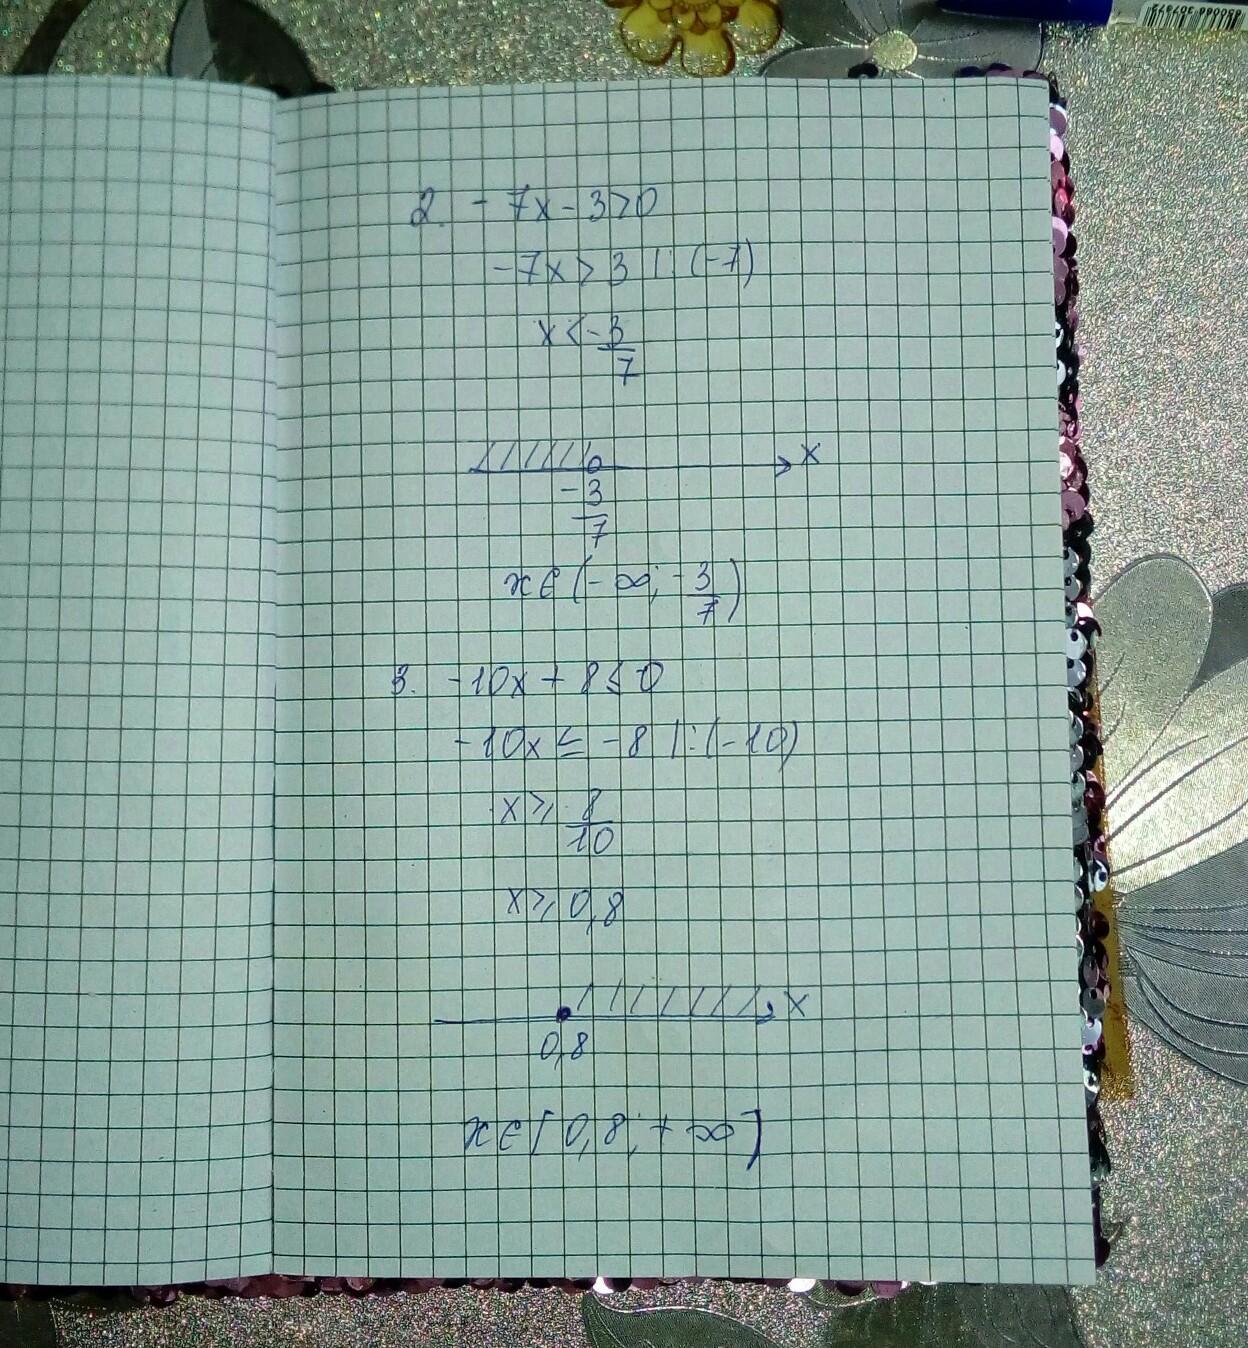 2. -7x-3>0
-7x>3 |:(-7)
x<-3/7
x
-3/7
x∈(-∞;-3/7)
3. -10x+8≤0
-10x≤-8 |:(-10)
x⩾8/10
x⩾0,8
x
0,8
x∈[0,8;+∞]